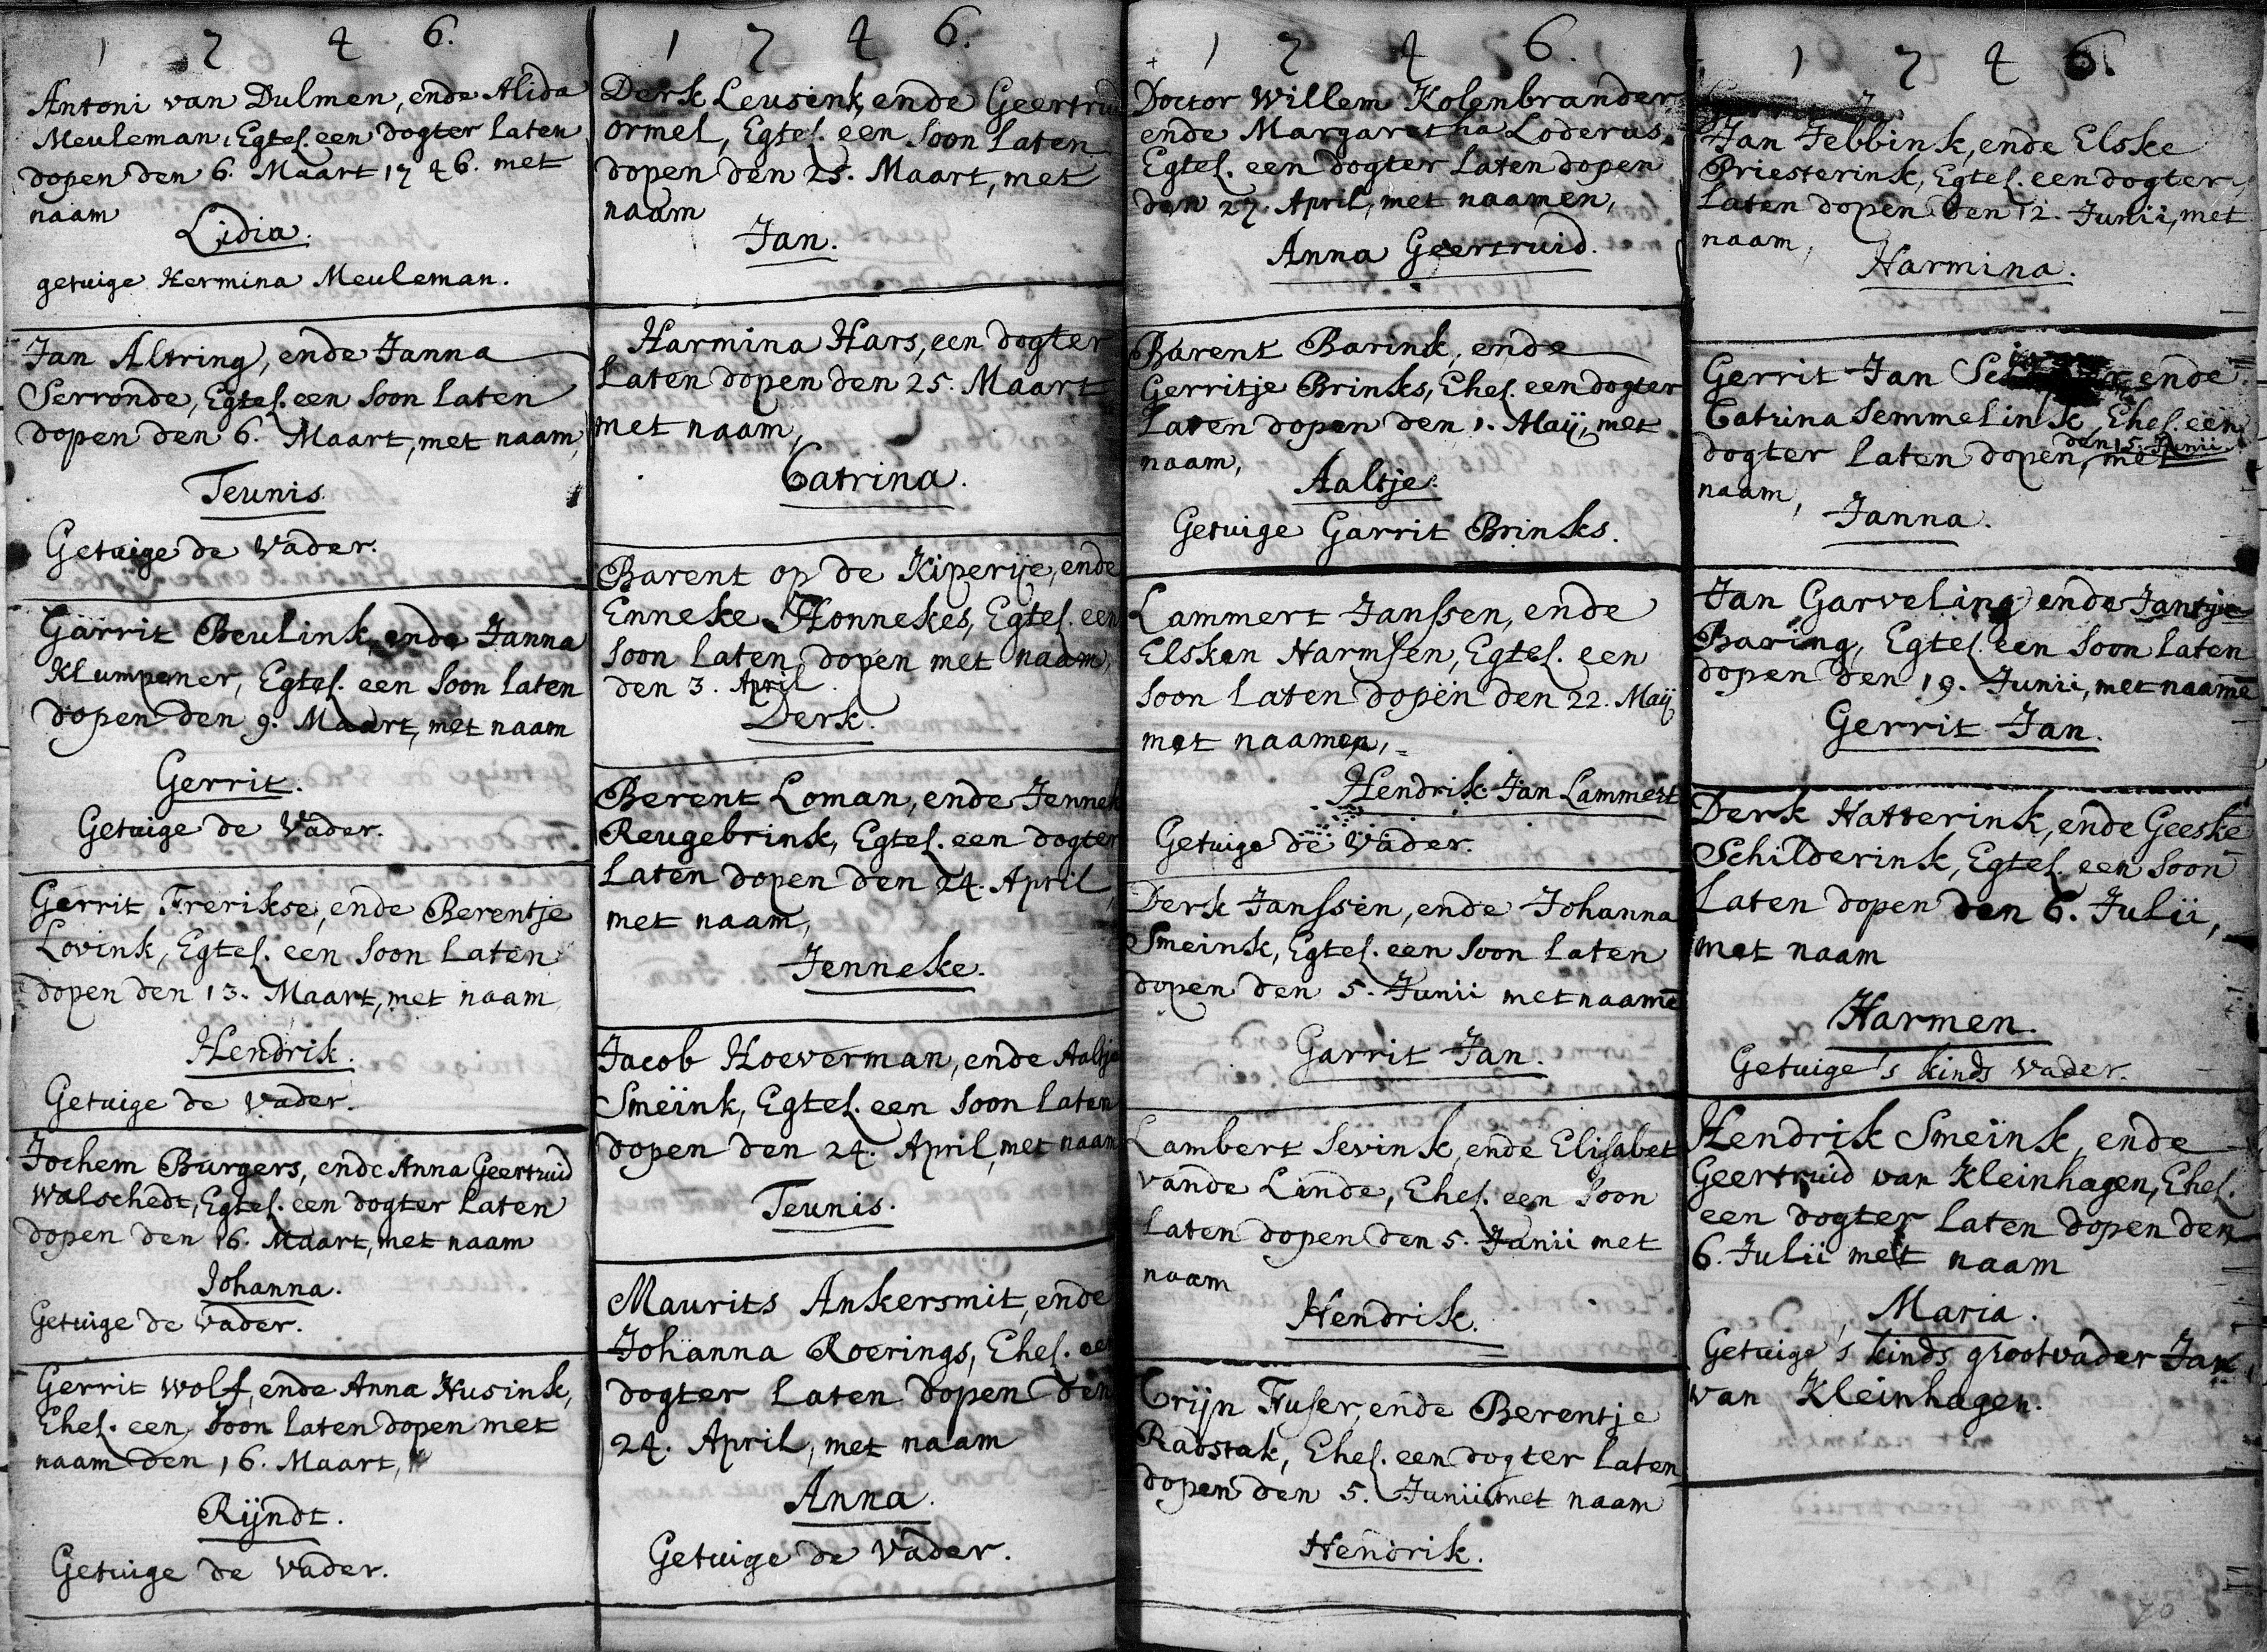 1 7 4 6.
Antoni van Dulmen, ende Alida
Meuleman, Egtel. een dogter laten
dopen den 6. Maart 1746. met
naam
Lidia.
getuige Hermina Meuleman.
Jan Altring, ende Janna
Serronde, Egtel. een soon laten
dopen den 6. Maart, met naam,
Teunis.
Getuige de Vader.
Garrit Beulink, ende Janna
Klumpener, Egtel. een soon laten
dopen den 9. Maart, met naam
Gerrit.
Getuige de Vader.
Gerrit Frerikse, ende Berentje
Lovink, Egtel. een soon laten
dopen den 13. Maart, met naam
Hendrik.
Getuige de Vader.
Jochem Burgers, ende Anna Geertruid
Walschedt, Egtel. een dogter laten
dopen den 16. Maart, met naam
Johanna.
Getuige de Vader.
Gerrit Wolf, ende Anna Husink,
Ehel. een soon laten dopen met
naam den 16. Maart,
Rijndt.
Getuige de Vader.
1 7 4 6.
Derk Leusink, ende Geertruid
Ormel, Egtel. een soon laten
dopen den 25. Maart, met
naam
Jan.
Harmina Hars, een dogter
laten dopen den 25. Maart
met naam,
Catrina.
Barent op de Kiperije, ende
Enneke Honnekes, Egtel. een
soon laten dopen met naam,
den 3. April.
Derk.
Berent Loman, ende Jennek
Reugebrink, Egtel. een dogter
laten dopen den 24. April,
met naam,
Jenneke.
Jacob Hoeverman, ende Aaltje
Smeïnk, Egtel. een soon laten
dopen den 24. April, met naam
Teunis.
Maurits Ankersmit, ende
Johanna Roerings, Ehel. een
dogter laten dopen den
24. April, met naam
Anna.
Getuige de Vader.
1 7 4 6.
Doctor Willem Kolenbrander
ende Margaretha Loderus,
Egtel. een dogter laten dopen
den 27. April, met naamen,
Anna Geertruid.
Barent Barink, ende
Gerritje Brinks, Ehel. een dogter
laten dopen den 1. Maij, met
naam,
Aaltje.
Getuige Garrit Brinks.
Lammert Janssen, ende
Elsken Harmsen, Egtel. een
soon laten dopen den 22. Maij
met naamen,
Hendrik Jan Lammert
Getuige de Vader.
Derk Janssen, ende Johanna
Smeink, Egtel. een soon laten
dopen den 5. Junii met naame
Garrit Jan.
Lambert Sevink, ende Elisabet
vande Linde, Ehel. een soon
laten dopen den 5. Junii met
naam
Hendrik.
Crijn Fuser, ende Berentje
Radstak, Ehel. een dogter laten
dopen den 5. Junii met naam
Hendrik.
1 7 4 6.
Jan Jebbink, ende Elske
Priesterink, Egtel. een dogter
laten dopen den 12. Junii, met
naam,
Harmina.
Gerrit Jan ende
Catrina Semmelink, Ehel. een
den 15. Junii
dogter laten dopen, met
naam,
Janna.
Jan Garveling ende Jantjje
Baring, Egtel. een soon laten
dopen den 19. Junii, met naame
Gerrit Jan.
Derk Hatterink, ende Geeske
Schilderink, Egtel. een soon
laten dopen den 6. Julii,
met naam
Harmen.
Getuige 's kinds Vader.
Hendrik Smeïnk, ende
Geertruid van Kleinhagen, Ehel.
een dogter laten dopen den
6. Julii met naam
Maria.
Getuige 's kinds grootvader Jan
van Kleinhagen.